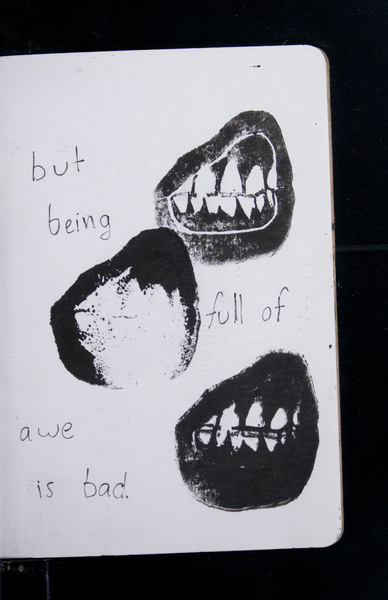 but
being
full of
awe
is bad.